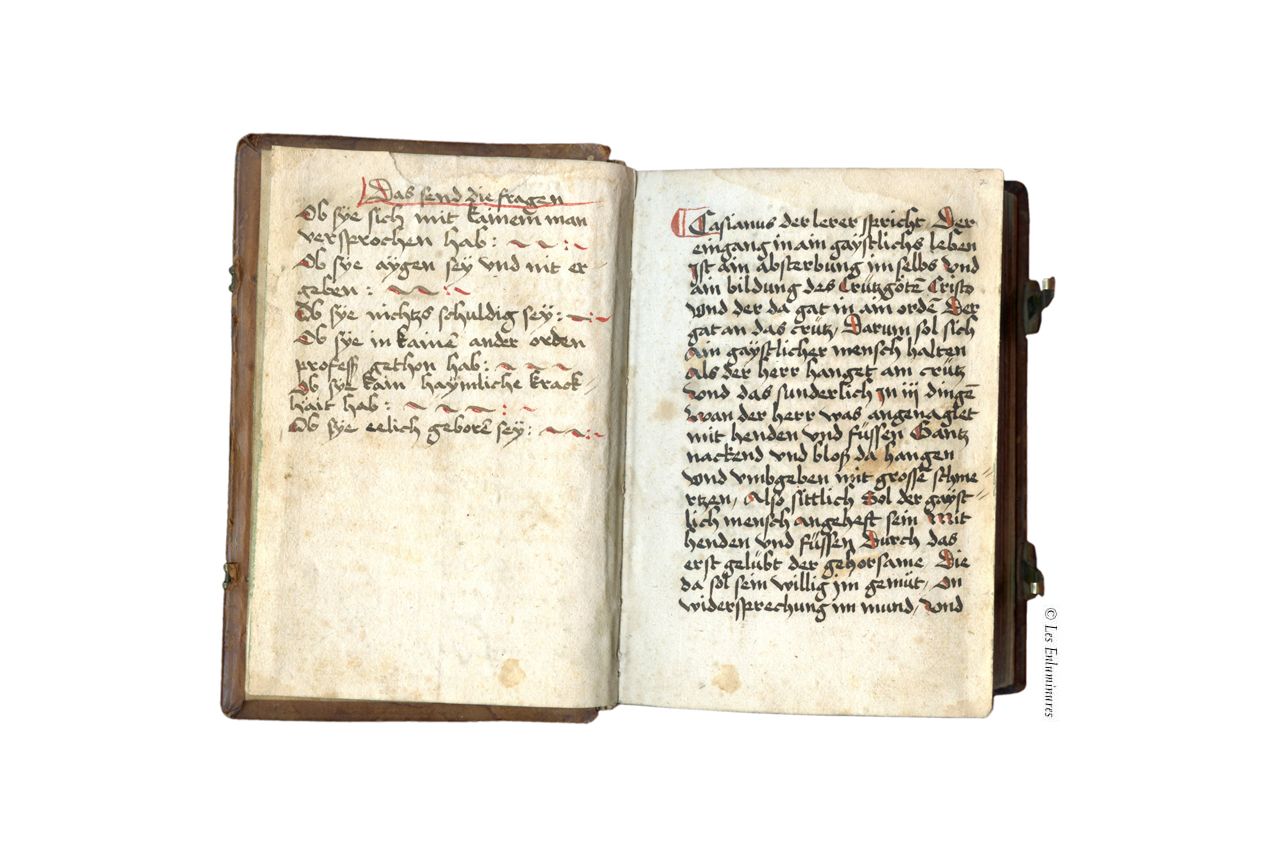 Das send die fragen
Ob sye sich mit kainem man
versprochen hab :
Ob sye aygen sey vnd nit er-
geben :
Ob sye nichtzs schuldig sey :
Ob sye in kainē ander orden
profess gethon hab :
Ob sye kain haymliche kranck-
hait hab :
Ob sye eelich geborē sey :
Casianus der lerer spricht Der
eingang in ain gaystlichs leben
Ist ain absterbung im selbs vnd
ain bildung des Crützgotē Cristo
vnd der da gat in ain ordē Der
gat an das crütz, Darum sol sich
Ain gaystlicher mensch halten
Als der herr hanget am crütz
vnd das sunderlich In iij dingē
wan der herr was angenaglet
mit henden vnd füssen Gantz
nackend vnd bloß da hangen
vnd vmbgeben mit grosse schme
rtzen, Also sittlich Sol der gayst
lich mensch Angeheft sein Mit
henden vnd füssen Durch das
erst gelübt der gehorsame Die
da sol sein willig jm gemüt, On
widersprechung im mund, vnd
© Les Enluminures